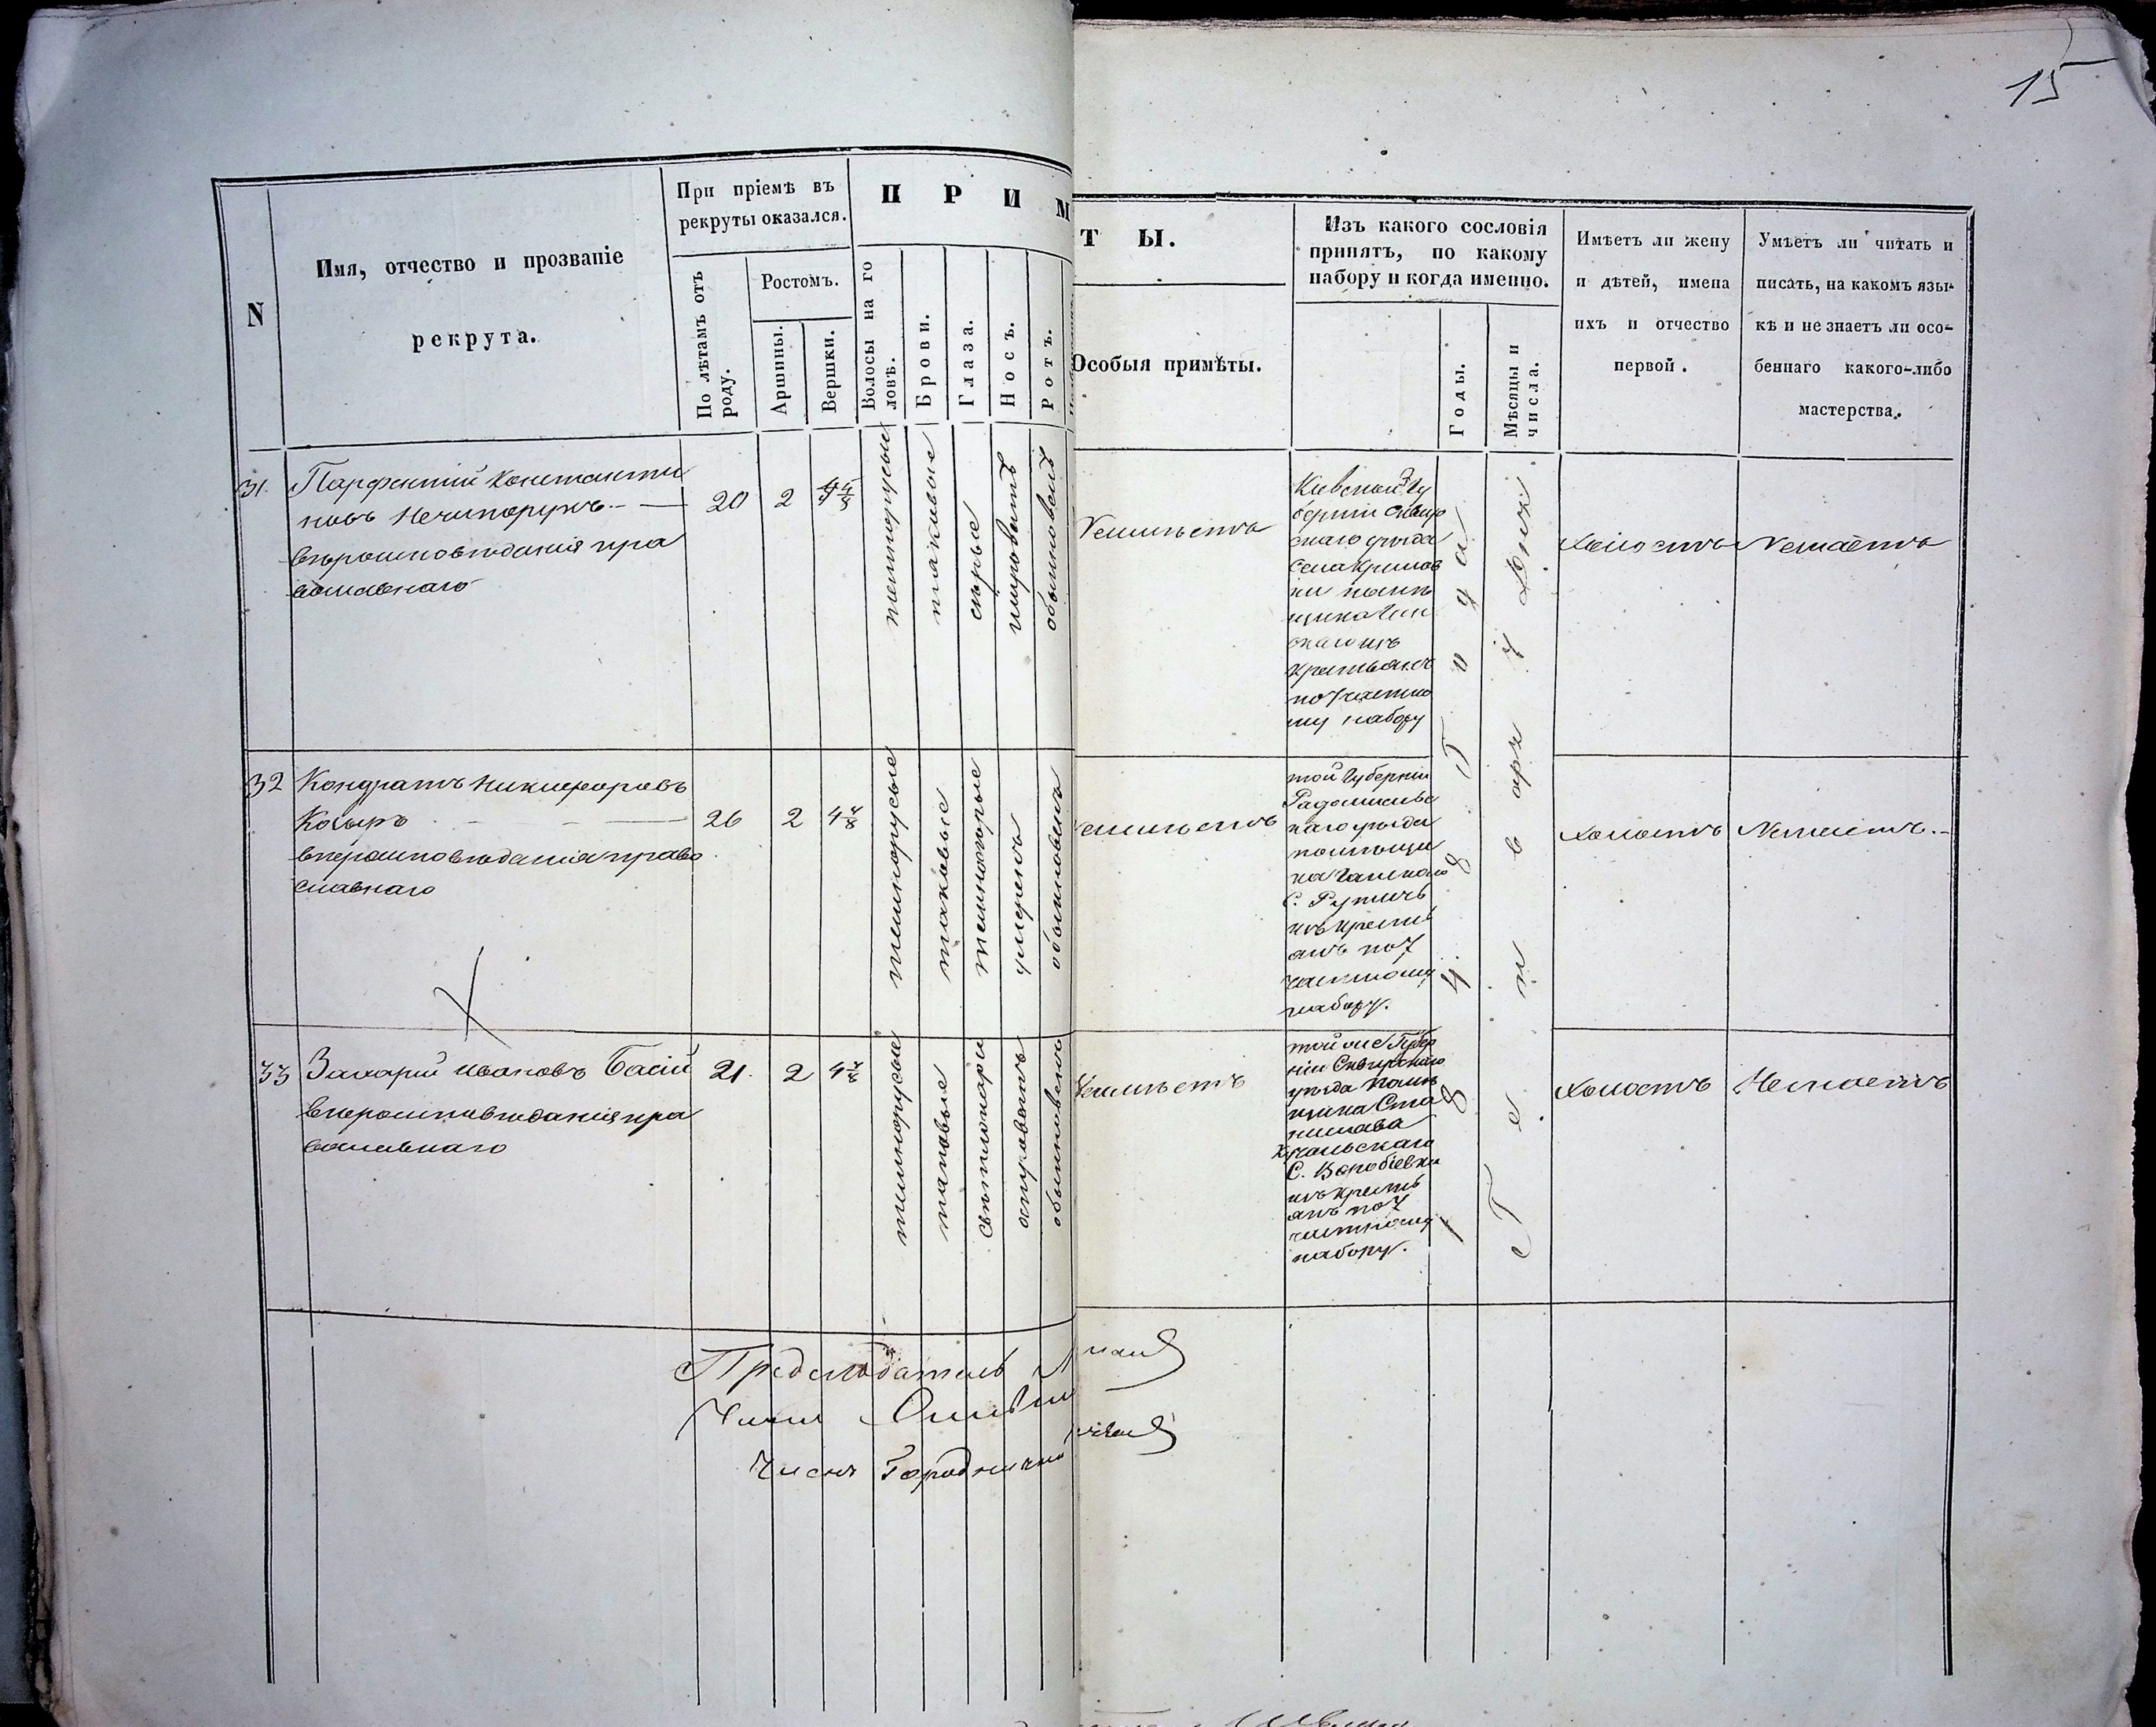 15
N
Имя, отчество и прозваніе
рекрута.
При пріемѣ въ
рекруты оказался.
По лѣтамъ отъ
роду.
Ростомъ.
Аршины.
Вершки.
П Р И М
Волосы на го
ловѣ.
Брови.
Глаза.
Носъ.
Ротъ.
Т Ы.
Особыя примѣты.
Изъ какого сословія
принятъ, по какому
набору и когда именно.
Годы.
Мѣсяцы и
числа.
Имѣетъ ли жену
и дѣтей, имена
ихъ и отчество
первой.
Умѣетъ ли читать и
писать, на какомъ язы-
кѣ и не знаетъ ли осо-
беннаго какого-либо
мастерства.
31.
Парфентий Константи
новъ Нечипорукъ
вѣроисповѣданія пра
вославнаго
20
2
темнорусые
таковые
сѣрые
широватъ
обыкновенъ
Неимѣетъ
Кіевской Гу
берніи Сквир
скаго уѣзда
Села Кривош
ки помѣ
щика
скаго изъ
крестьянъ
по 7 частно
му набору
холостъ
Незнаетъ
32
Кондратъ Никифоровъ
Козыръ
вѣроисповѣданія право
славнаго
26
2
4 4/8
темнорусые
таковые
темносѣрые
умѣренъ
обыкновенъ
неимѣетъ
той Губерніи
Радомысльс
каго уѣзда
помѣщи
ка
С.
изъ кресть
анъ по 7
частному
набору.
холостъ
Незнаетъ.
33
Захарій Ивановъ Басій
вѣроисповѣданія пра
вославнаго
21.
2
4 4/8
темнорусые
таковые
свѣтлокаріе
островатъ
обыкновенъ
Неимѣетъ
той же Губер
ніи Сквирскаго
уѣзда помѣ
щика Ста
нислава
С. Воробіевки
изъ кресть
янъ по 7
частному
набору.
холостъ
Незнаетъ
184 8 Года
Генваря 7 дня
Председатель
Членъ
Членъ Городничий